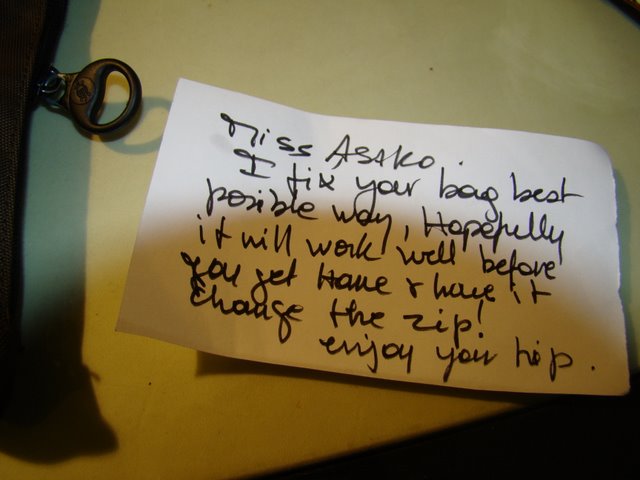 Miss Asako.
I fix your bag best
posible way, Hopefully
it will work well before
you get Home & have it
change the zip!
enjoy your trip.